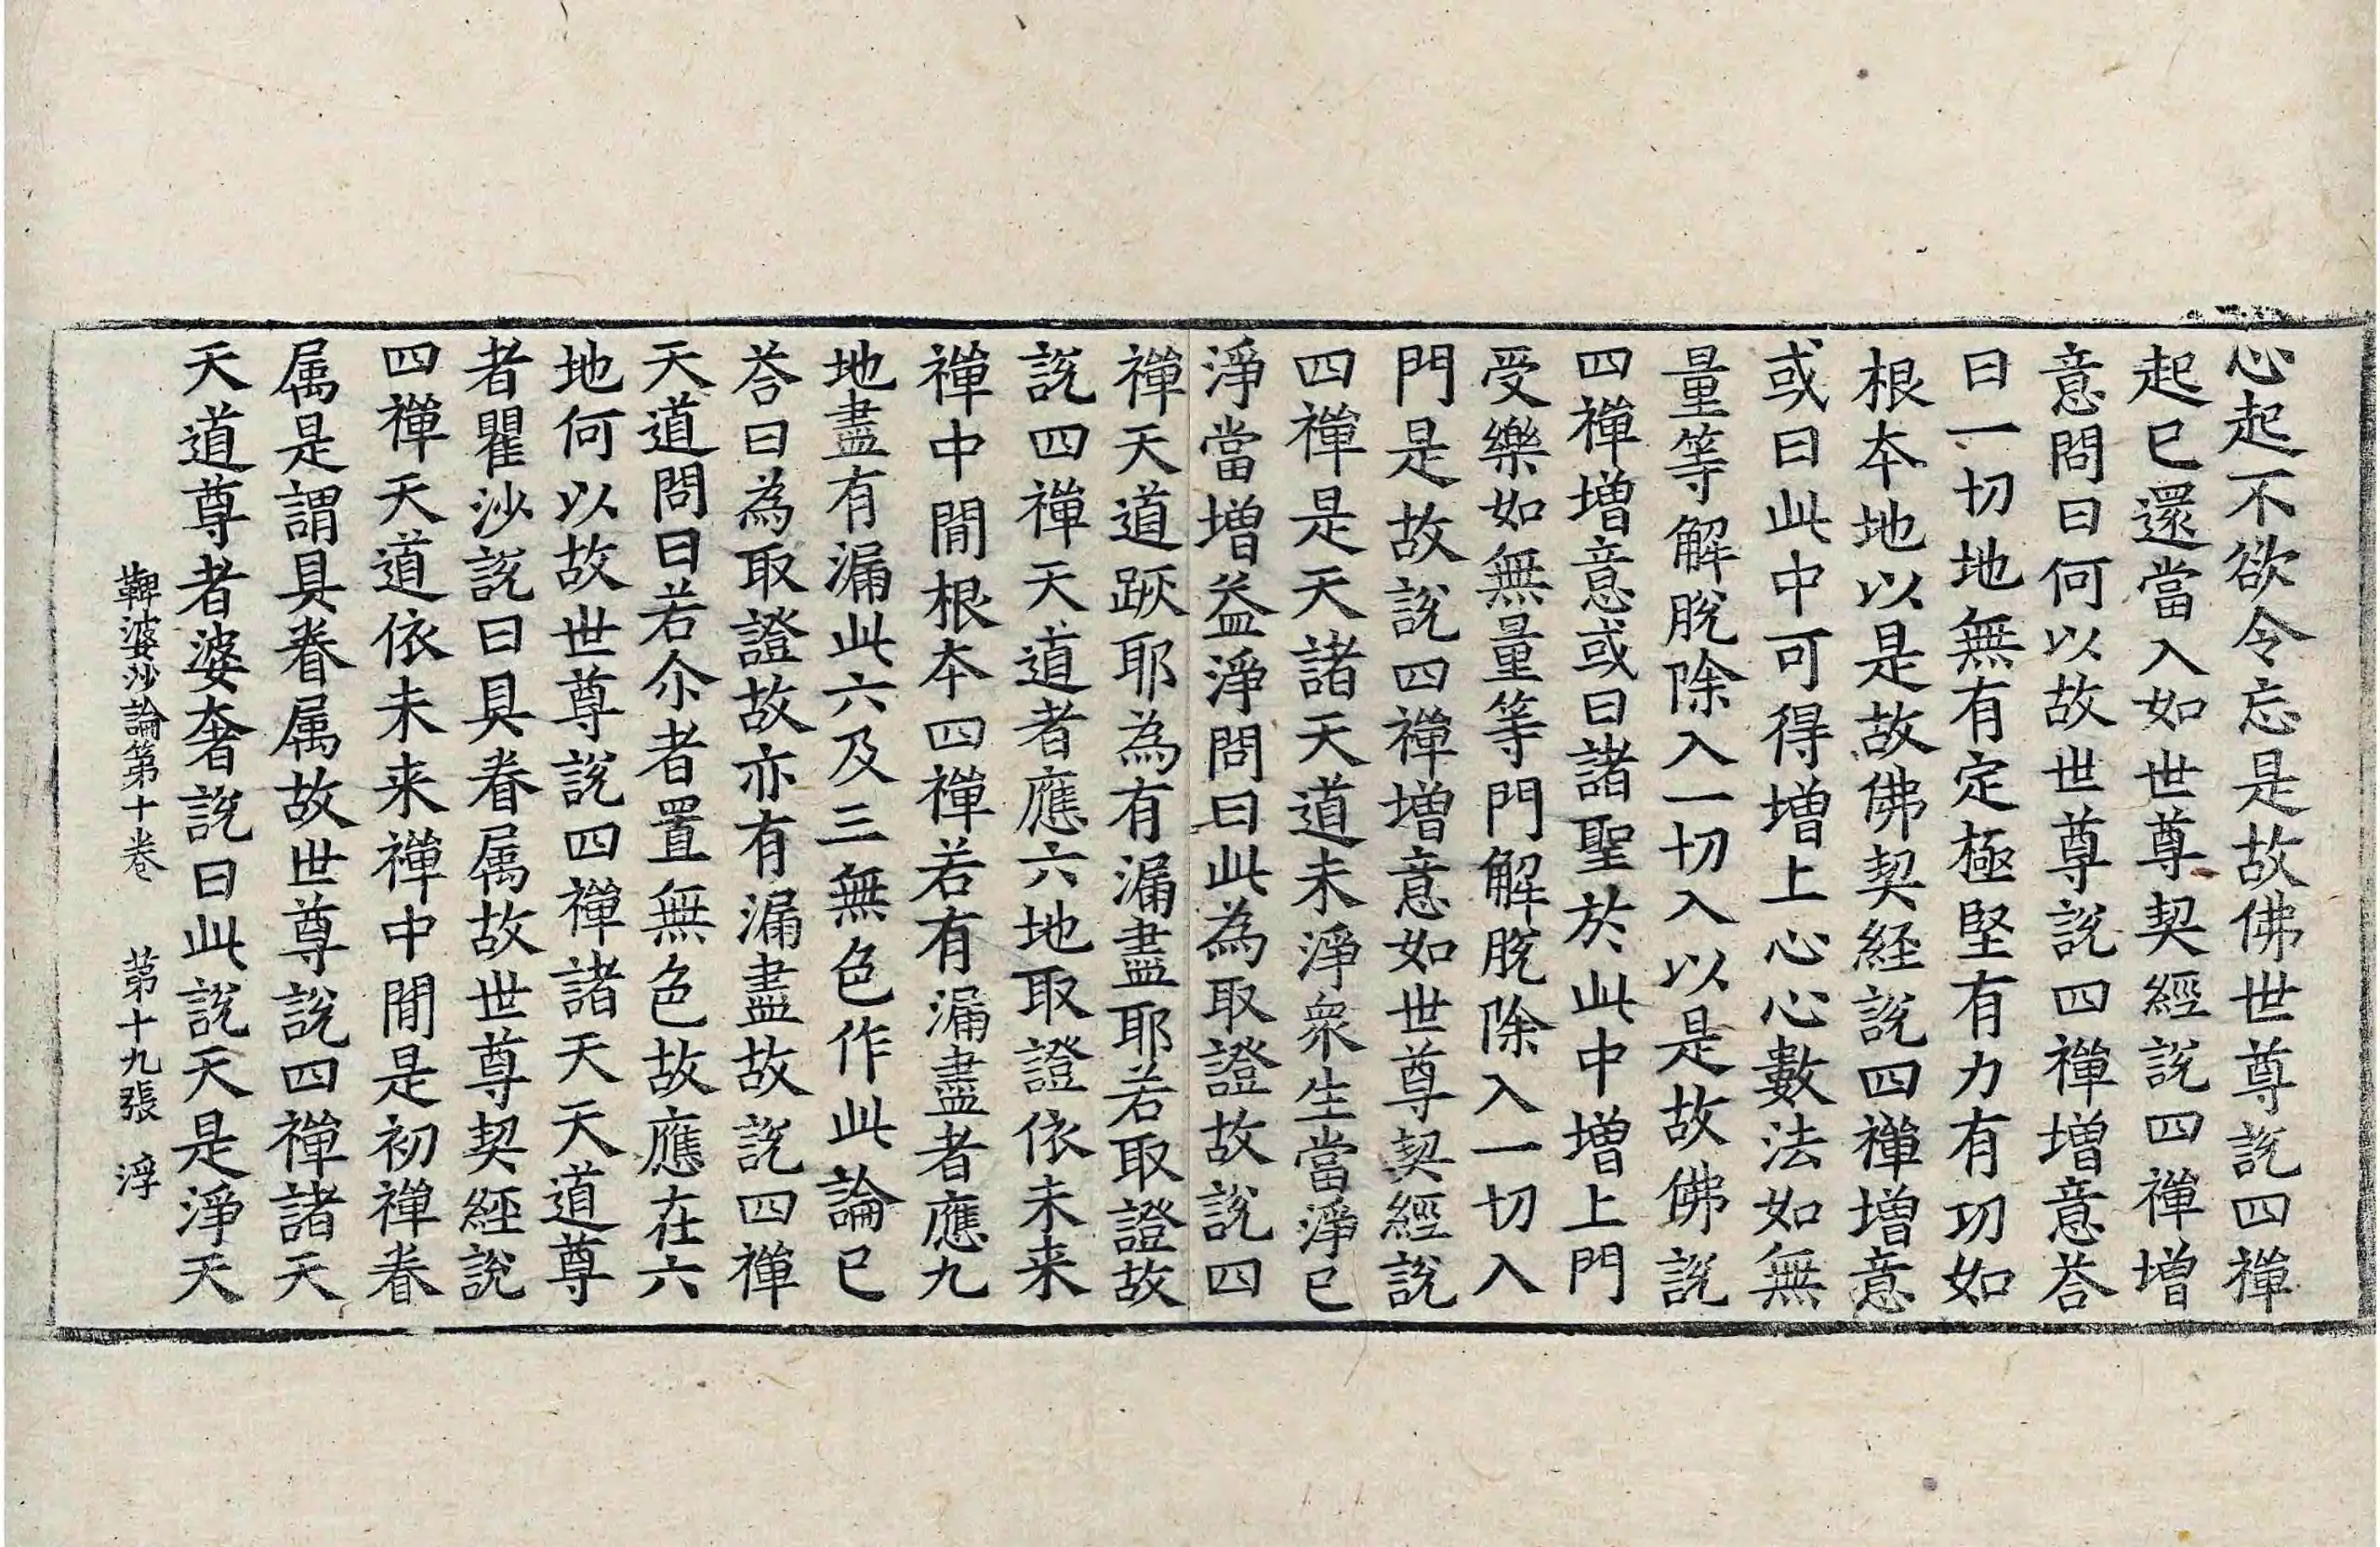 心起不欲令忘是故佛世尊説四禪
起已還當入如世尊契經説四禪增
意問曰何以故世尊説四禪增意荅
曰一切地無有定極堅有力有功如
根本地以是故佛契経説四禪增意
或曰此中可得增上心心數法如無
量等解脫除入一切入以是故佛説
四禪增意或曰諸聖於此中增上門
受樂如無量等門解脫除入一切入
門是故説四禪增意如世尊契經説
四禪是天諸天道未淨衆生當淨已
淨當增益淨問曰此為取證故説四
禪天道跡耶為有漏盡耶若取證故
説四禪天道者應六地取證依未来
禪中間根本四禪若有漏盡者應九
地盡有漏此六及三無色作此論已
荅曰為取證故亦有漏盡故説四禪
天道問曰若尒者置無色故應在六
地何以故世尊説四禪諸天天道尊
者瞿沙説曰具眷属故世尊契經説
四禪天道依未来禪中間是初禪眷
属是謂具眷属故世尊説四禪諸天
天道尊者婆奢説曰此説天是淨天
鞞婆沙論第十卷 第十九張 浮